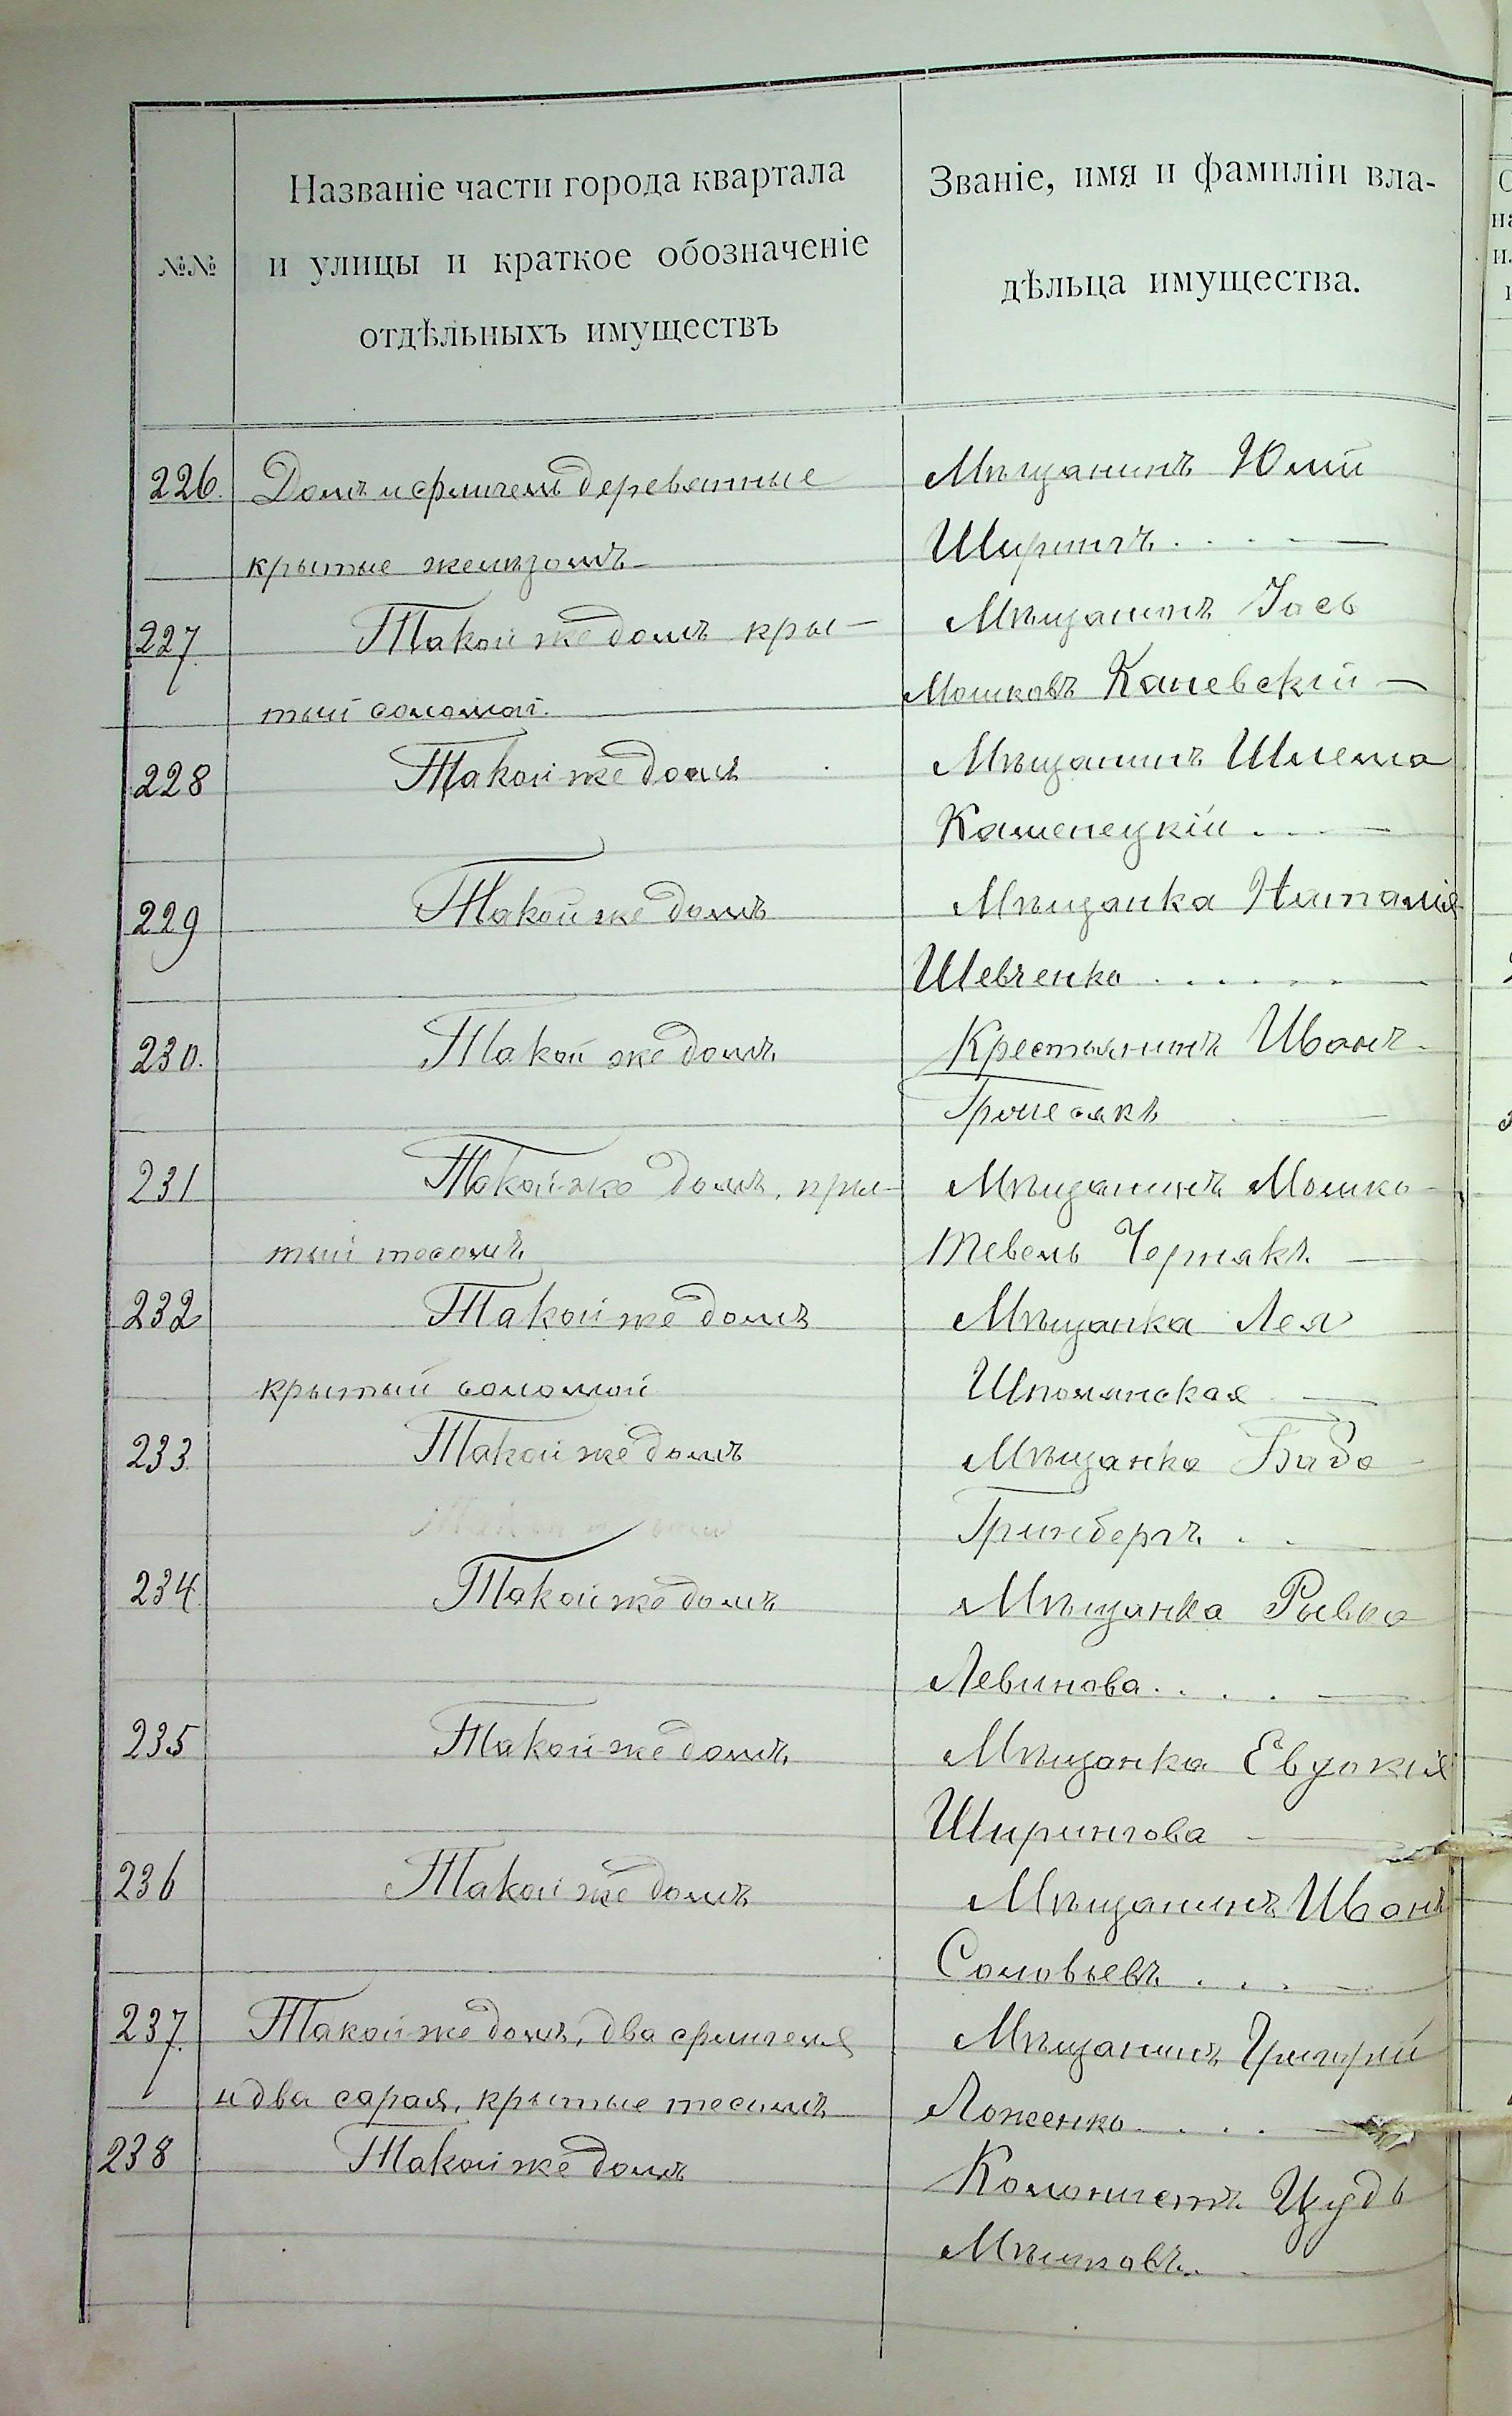 №№
Названіе части города квартала
и улицы и краткое обозначеніе
отдѣльныхъ имуществъ
Званіе, имя и фамиліи вла-
дѣльца имущества.
226. Домъ и флигель деревянные
крытые желѣзомъ
Мѣщанинъ Юлій
Ширингъ . . . —
227. Такой же домъ кры-
тый соломой.
Мѣщанинъ Іось
Мошковъ Каневскій —
228 Такой же домъ
Мѣщанинъ Шлема
Каменецкій . —
229 Такой же домъ
Мѣщанка Наталія
Шевченко . . . . . —
230. Такой же домъ
Крестьянинъ Иванъ
231 Такой-же домъ, кры-
тый тесомъ
Мѣщанинъ Мошко-
Тевель Чернякъ —
232 Такой же домъ
крытый соломой
Мѣщанка Лея
Шполянская —
233. Такой же домъ
Мѣщанка
Гринбергъ . .
234. Такой же домъ
Мѣщанка Рывка
Левинова . . . . —
235 Такой-же домъ
Мѣщанка Евдокія
Ширингова —
236 Такой же домъ
Мѣщанинъ Иванъ
Соловьевъ . . . —
237. Такой же домъ, два флигеля
и два сарая, крытые тесомъ
Мѣщанинъ Григорій
Ложенко . . . . —
238 Такой же домъ
Колонистъ